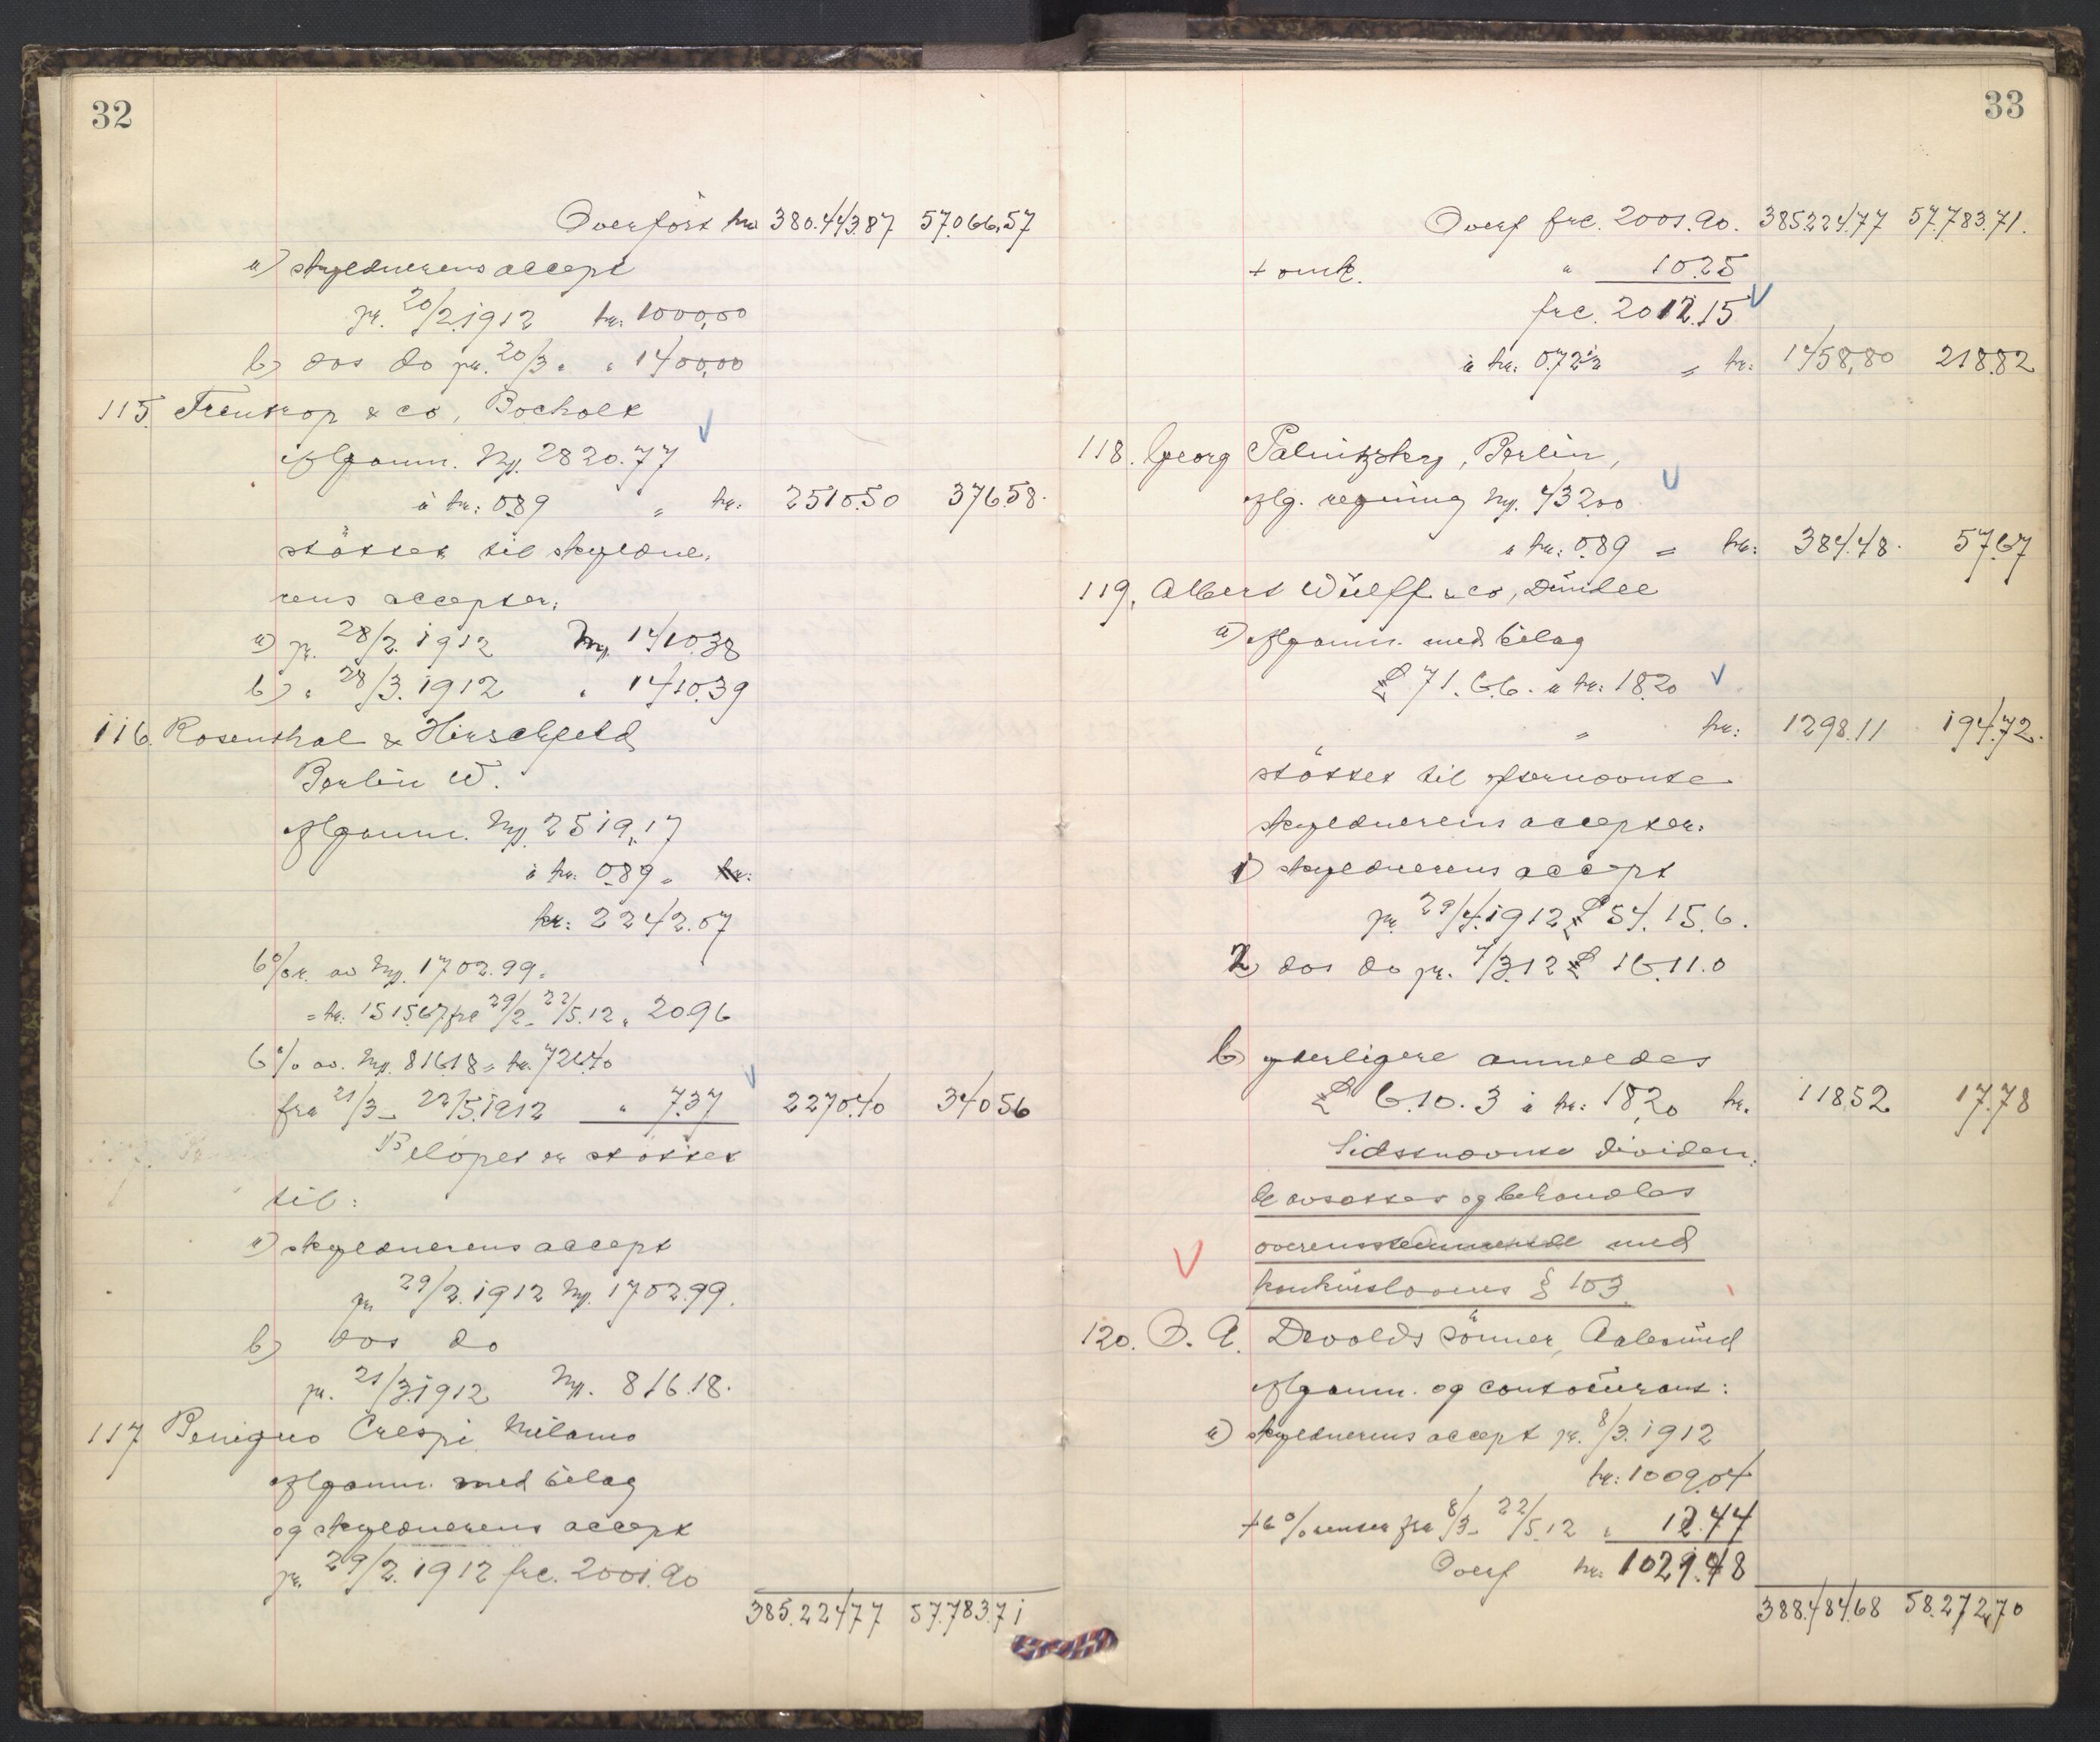 32
Overført kr. 380.443.87 57.066,57
a) skyldnerens accept
pr. 20/2.1912 kr. 1000,00
b) dos do pr. 20/3 " " 1400,00
115. Trentrop & co, Bocholt
Ifl. gaum. Mk. 2820.77
à kr: 0.89 = kr. 2510.50 376.58.
støttet til skyldne-
rens accepter:
a) pr. 28/2. 1912 Mk. 1410.38
b) " 28/3. 1912 " 1410.39
116. Rosenthal & Hirschfeld
Berlin W.
Mk. 2519,17
à kr. 0.89 = kr:
kr: 2242.07
6% r. av Mk. 1702.99.
= kr. 1515.67 fra 29/2 - 22/5.12 " 20.96
6% av. Mk. 816.18 = kr. 726.40
fra 21/3 - 22/5.1912 " 7.37 2270.40 340.56
Beløpet er støttet
til:
a) skyldnerens accept
pr 29/2. 1912 Mk. 1702.99.
b) dos do
pr. 21/3.1912 Mk. 816.18.
117 Benigno Crespi, Milano
med bilag
og skyldnerens accept
pr. 29/2. 1912 frc. 2001.90
385.224.77 57.783.71
33
Overf frc. 2001.90. 385224.77 57.783.71.
+ omk. " 10.25
frc. 2012.15
à kr. 0.72½ = kr: 1458,80 218.82
118. Georg Palnitzky, Berlin,
Iflg. regning Mk. 432.00
à kr: 0.89 = kr: 384.48. 57.67
119. Albert Wülff & co, Dundee
a) med bilag
£ 71.6.6. à kr: 18.20
= kr: 1298.11 194.72.
støttet til efternævnte
skyldnerens accepter:
1) skyldnerens accept
pr. 29/4.1912 £ 54.15.6.
2) dos do pr. 7/3.12 £ 16.11.0
b) yterligere anmeldes
£ 6.10.3 à kr: 18,20 kr. 118.52 17.78
Sidstnævnte dividen-
de avsettes og behandles
overensstemmende med
konkurslovens § 103.
120. O. A. Devolds sønner, Aalesund
og contocurant:
a) skyldnerens accept pr. 8/3. 1912
kr: 1009,04
+ 6% renter fra 8/3 - 22/5.12 " 12.44
Overf kr: 1021.48
388.484.68 58.272,70